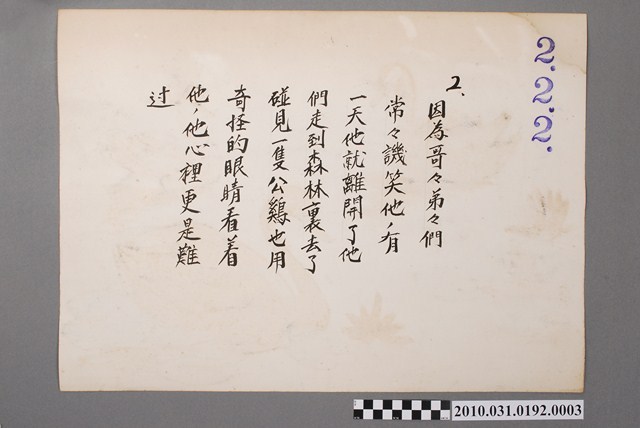 2.2.2.
2、因為哥々弟々們
常々譏笑他,有
一天他就離開了他
們走到森林裏去了
碰見一隻公鷄也用
奇怪的眼睛看着
他,他心裡更是難
过
2010.031.0192.0003